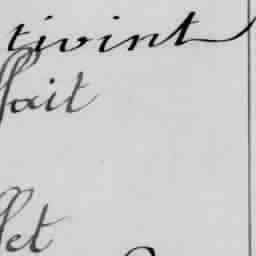 tivint
fait
let